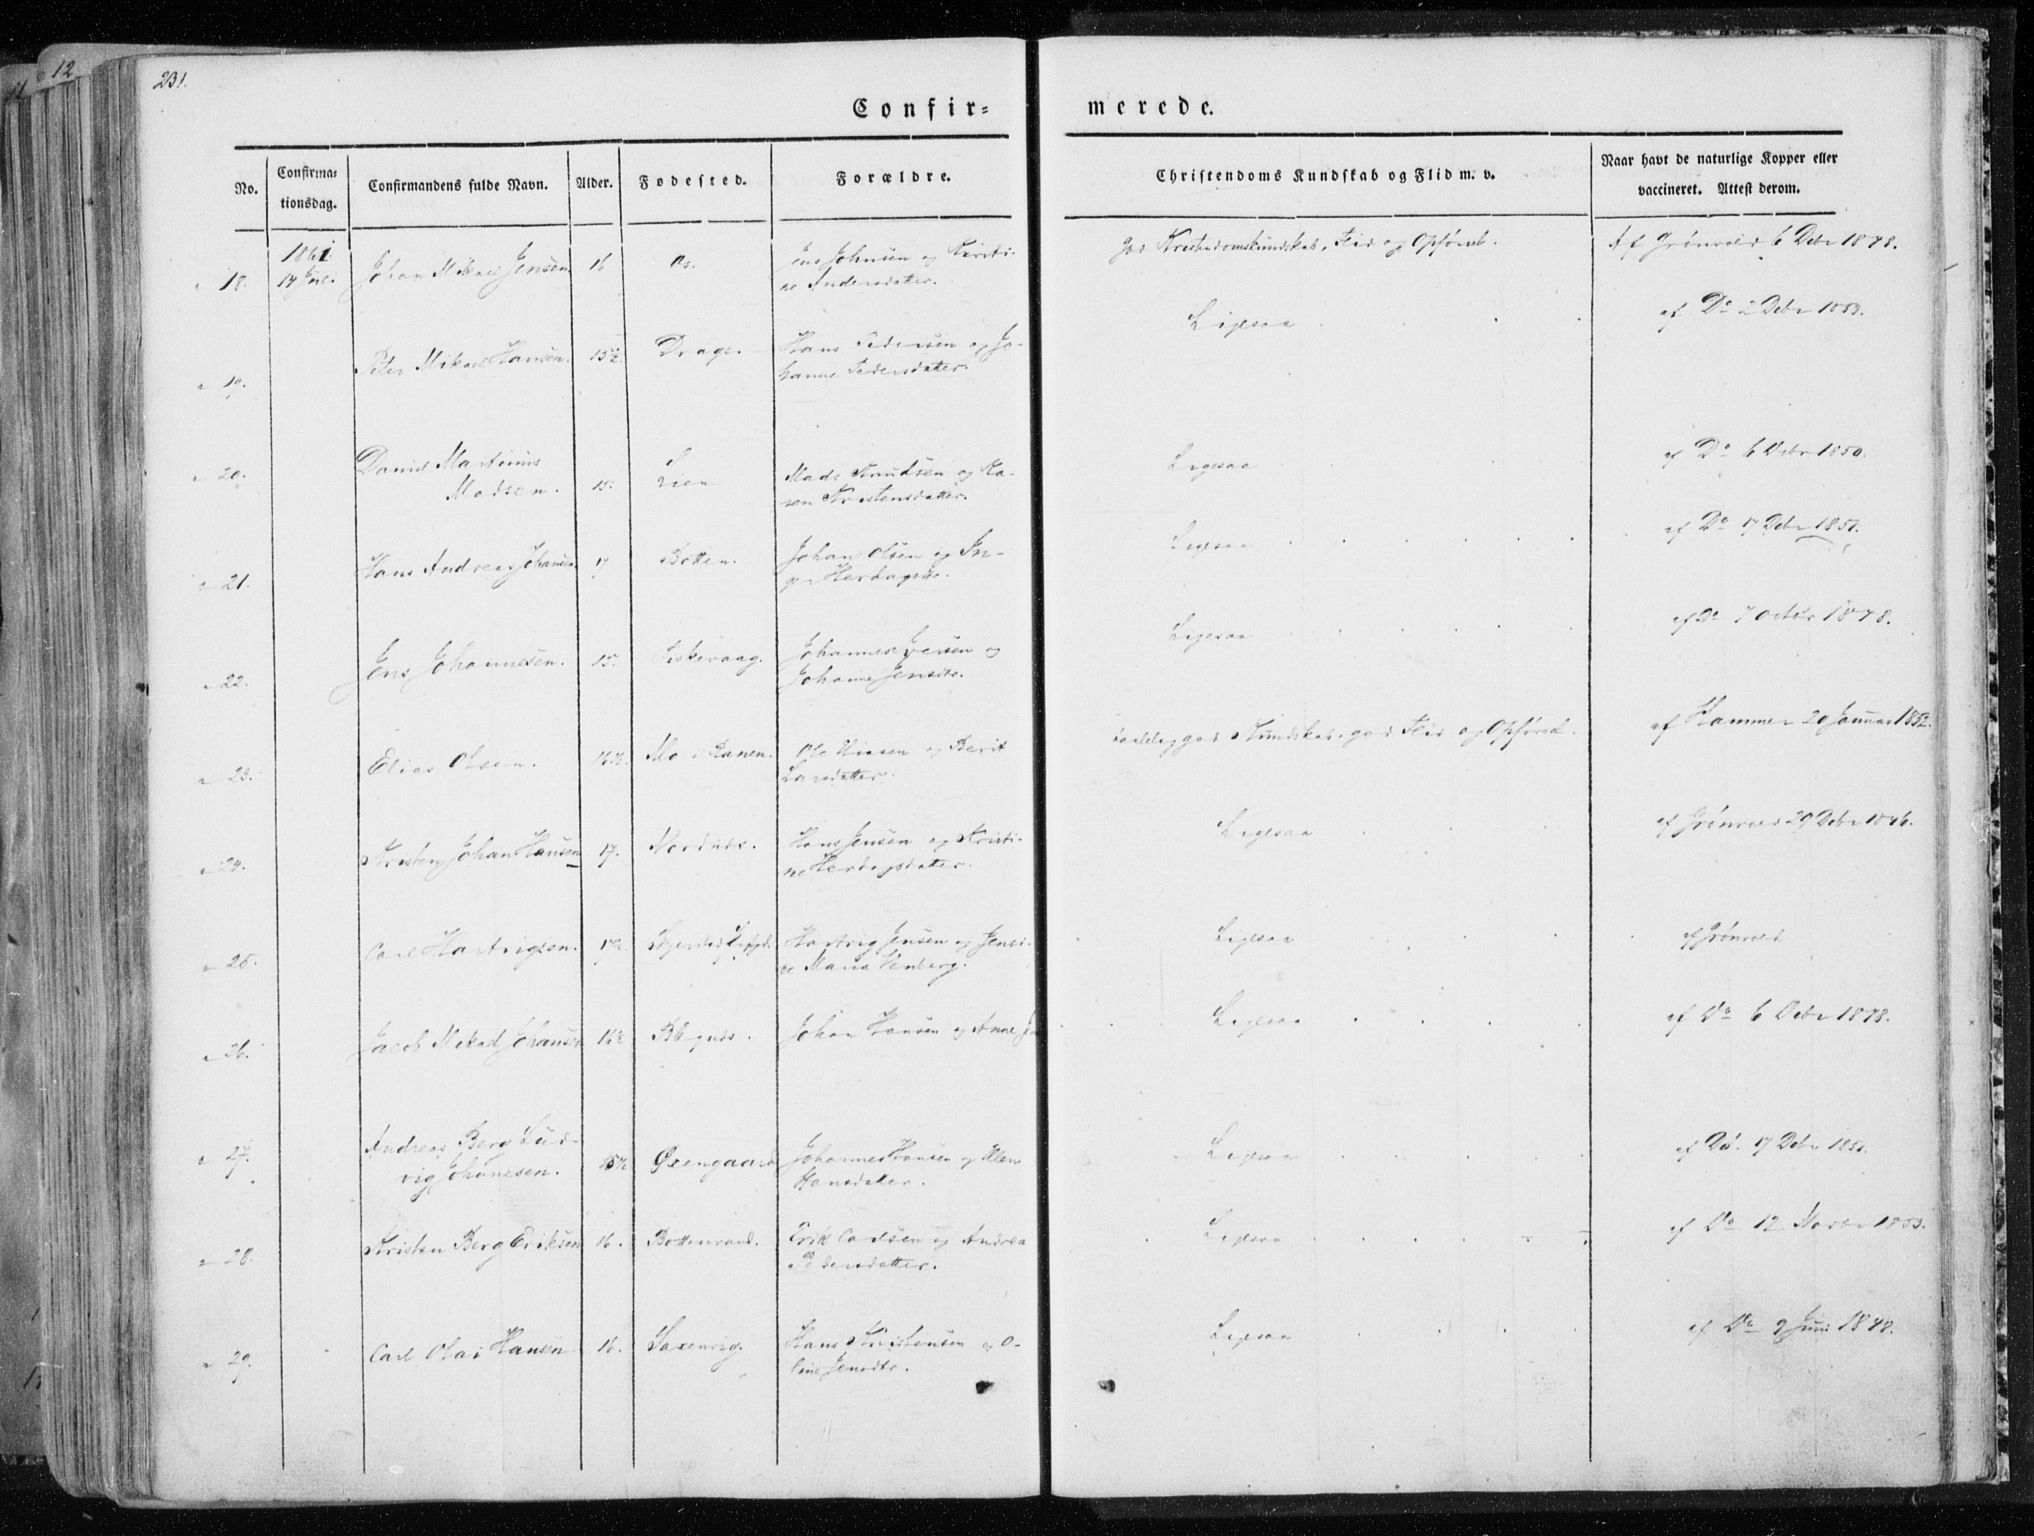 12
231.
Confir=
merede.
No.
Confirma=
tionsdag.
Confirmandens fulde Navn.
Alder.
Fødested.
Forældre.
Christendoms Kundskab og Flid m. v.
Naar havt de naturlige Kopper eller
vaccineret. Attest derom.
18. 1861 Johan Mikael Jensen 16 Os. Jens Johnsen og Kirsti-
ne Andersdatter.
God Kristendomskundskab, Flid og Opførsel. Af Grønvold 6 Debr 1848.
19. Peter Mikael Hansen. 15½ Drage. Hans Pedersen og Jo-
hanne Pedersdatter.
Ligesaa af Do 2 Debr 1853.
20. Daniel Martinus
Madsen. 15. Lien Mads Knudsen og Ka-
ren Kristensdatter.
Ligesaa af Do 6 Debr 1850.
21. Hans Andreas Johansen 17 Botten. Johan Olsen og In-
ger Herdagsdr.
Ligesaa af Do 17 Debr 1851.
22. Jens Johannesen. 15. Fiskevaag. Johannes Iversen og
Johanne Jensdtr.
Ligesaa af Do 7 Octbr 1848.
23. Elias Olsen. 16½. Mo i Ranen. Ole Nilsen og Berit
Larsdatter.
God Kundskab, god Flid og Opførsel. af Hammer 20 Januar 1852.
24. Kristen Johan Hansen 17. Nordnes. Hans Jensen og Kristi-
ne Herdagsdatter.
Ligesaa af Grønvold 29 Debr 1846.
25. Carl Hartvigsen. Hartvig Jensen og Jensi-
ne Maria Stenberg.
Ligesaa af Grønvold
26. Jacob Mikael Johansen 16½ Blegnes. Johan Hansen og Anne
Ligesaa af Do 6 Debr 1848.
27. Andreas Berg Lud-
vig Johanesen. 15½ Øxengaard Johannes Hansen og Elen
Hansdatter.
Ligesaa af Do. 17 Debr 1851.
28. Kristen Berg Eriksen 16. Bottenvand. Erik Carlsen og Andrea
Pedersdatter.
Ligesaa af Do 12 Novbr 1853.
29. Carl Olai Hansen 16. Saxenvig. Hans Kristensen og O-
line Jensdtr.
Ligesaa af Do 9 Juni 1848.